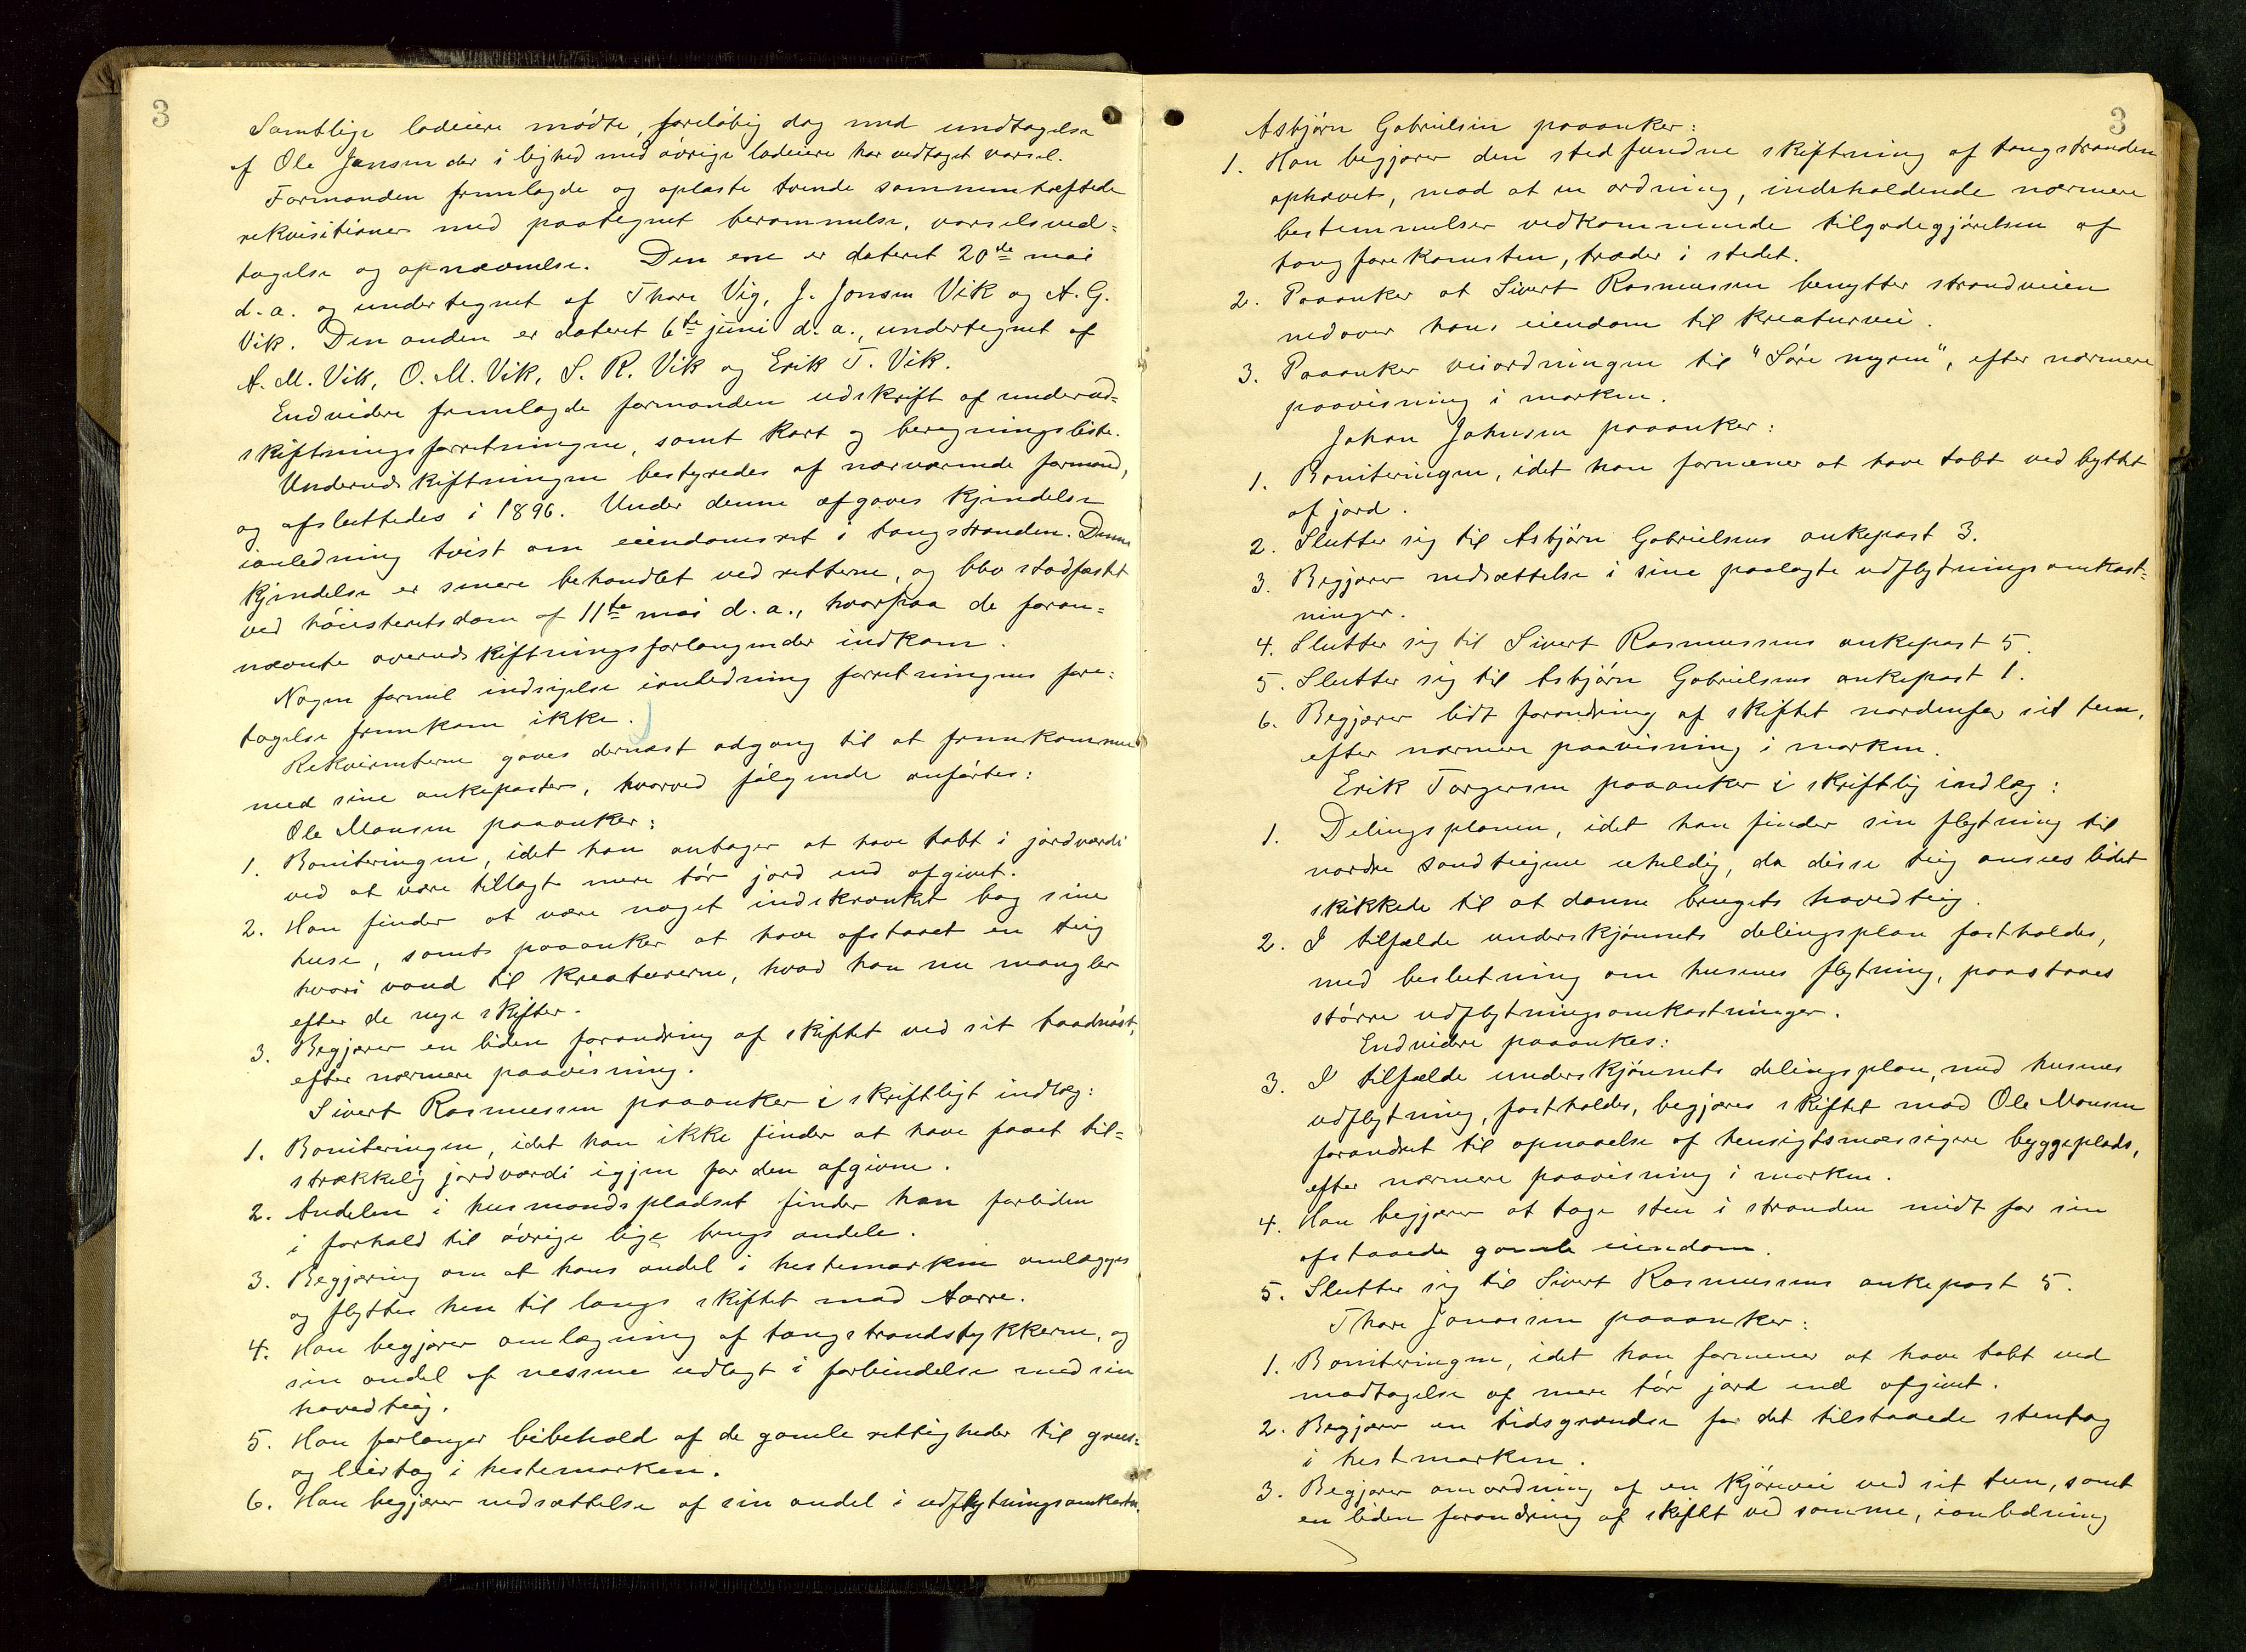 3
Samtlige lodeiere mødte, foreløbig dog med undtagelse
af Ole Jansen der i lighed med øvrige lodeiere har vedtaget varsel.
Formanden fremlagde og oplæste tvende sammenhæftede
rekvisitioner med paategnet berammelse, varselsved=
tagelse og opnævnelse. Den ene er dateret 20de mai
d. a. og undertegnet af Thore Vig, J. Jonsen Vik og A. G.
Vik. Den anden er dateret 6te juni d. a., undertegnet af
A. M. Vik, O. M. Vik, S. R. Vik og Erik T. Vik.
Endvidere fremlagde formanden udskrift af underud=
skiftningsforretningen, samt kart og beregningsliste.
Underudskiftningen bestyredes af nærværende formand,
og afsluttedes i 1896. Under denne afgaves kjendelse
ianledning tvist om eiendomsret i tangstranden. Denne
kjendelse er senere behandlet ved retterne, og blev stadfæstet
ved høiesteretsdom af 11te mai d. a., hvorpaa de foran=
nævnte overudskiftningsforlangender indkom.
Nogen formel indsigelse ianledning forretningens fore=
tagelse fremkom ikke.
Rekvirenterne gaves dernæst adgang til at fremkomme
med sine ankeposter, hvorved følgende anførtes:
Ole Monsen paaanker:
1. Boniteringen, idet han antager at have tabt i jordværdi
ved at være tillagt mere tør jord end afgivet.
2. Han finder at være noget indskrænket bag sine
huse, samt paaanker at have afstaaet en teig
hvori vand til kreaturerne, hvad han nu mangler
efter de nye skifter.
3. Begjærer en liden forandring af skiftet ved sit baadnøst,
efter nærmere paavisning.
Sivert Rasmussen paaanker i skriftligt indlæg:
1. Boniteringen, idet han ikke finder at have faaet til=
strækkelig jordværdi igjen for den afgivne.
2. Andelen i husmandspladset finder han forliden
i forhold til øvrige lige brugs andele.
3. Begjæring om at hans andel i hestemarken omlægges
og flyttes hen til langs skiftet mod Aarre.
4. Han begjærer omlægning af tangstrandstykkerne, og
sin andel af nessene udlagt i forbindelse med sin
hovedteig.
5. Han forlanger bibehold af de gamle rettigheder til grus=
og leirtag i hestemarken.
6. Han begjærer nedsættelse af sin andel i udflytningsomkostn.
3
Asbjørn Gabrielsen paaanker:
1. Han begjærer den stedfundne skiftning af tangstranden
ophævet, mod at en ordning, indeholdende nærmere
bestemmelser vedkommende tilgodegjørelsen af
tangforekomsten, træder i stedet.
2. Paaanker at Sivert Rasmussen benytter strandveien
nedover hans eiendom til kreaturvei.
3. Paaanker veiordningen til "Søre myren", efter nærmere
paavisning i marken.
Johan Johnsen paaanker:
1. Boniteringen, idet han formener at have tabt ved byttet
af jord.
2. Slutter sig til Asbjørn Gabrielsens ankepost 3.
3. Begjærer nedsættelse i sine paalagte udflytningsomkost=
ninger.
4. Slutter sig til Sivert Rasmussens ankepost 5.
5. Slutter sig til Asbjørn Gabrielsens ankepost 1.
6. Begjærer lidt forandring af skiftet nordenfor sit tun,
efter nærmere paavisning i marken.
Erik Torgersen paaanker i skriftlig indlæg:
1. Delingsplanen, idet han finder sin flytning til
nordre sandteigene uheldig, da disse teig ansees lidet
skikkede til at danne brugets hovedteig.
2. I tilfælde underskjønnets delingsplan fastholdes,
med beslutning om husenes flytning, paastaaes
større udflytningsomkostninger.
Endvidere paaankes:
3. I tilfælde underskjønnets delingsplan, med husenes
udflytning, fastholdes, begjæres skiftet mod Ole Monsen
forandret til opnaaelse af hensigtsmæssigere byggeplads,
efter nærmere paavisning i marken.
4. Han begjærer at tage sten i stranden midt for sin
afstaaede gamle eiendom.
5. Slutter sig til Sivert Rasmussens ankepost 5.
Thore Jonassen paaanker:
1. Boniteringen, idet han formener at have tabt ved
modtagelse af mere tør jord end afgivet.
2. Begjærer en tidsgrændse for det tilstaaede stentag
i hestmarken.
3. Begjærer omordning af en kjørevei ved sit tun, samt
en liden forandring af skiftet ved samme, ianledning